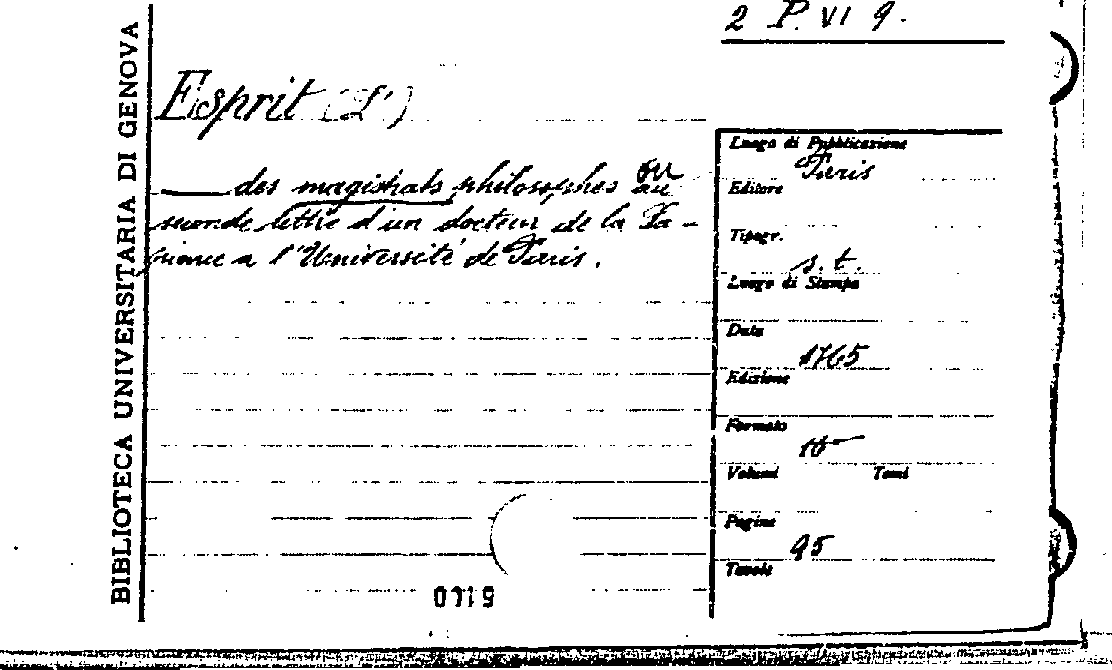 2 P. VI 9.
BIBLIOTECA UNIVERSITARIA DI GENOVA
Esprit (L')
des magistrats philosophes ou
lettre d'un docteur de la
a l'Université de Paris.
Luogo di Pubblicazione
Paris
Editore
Tipogr.
s. t.
Luogo di Stampa
Data
1765
Edizione
Formato
Volumi Tomi
Pagine
95
Tavole
0719